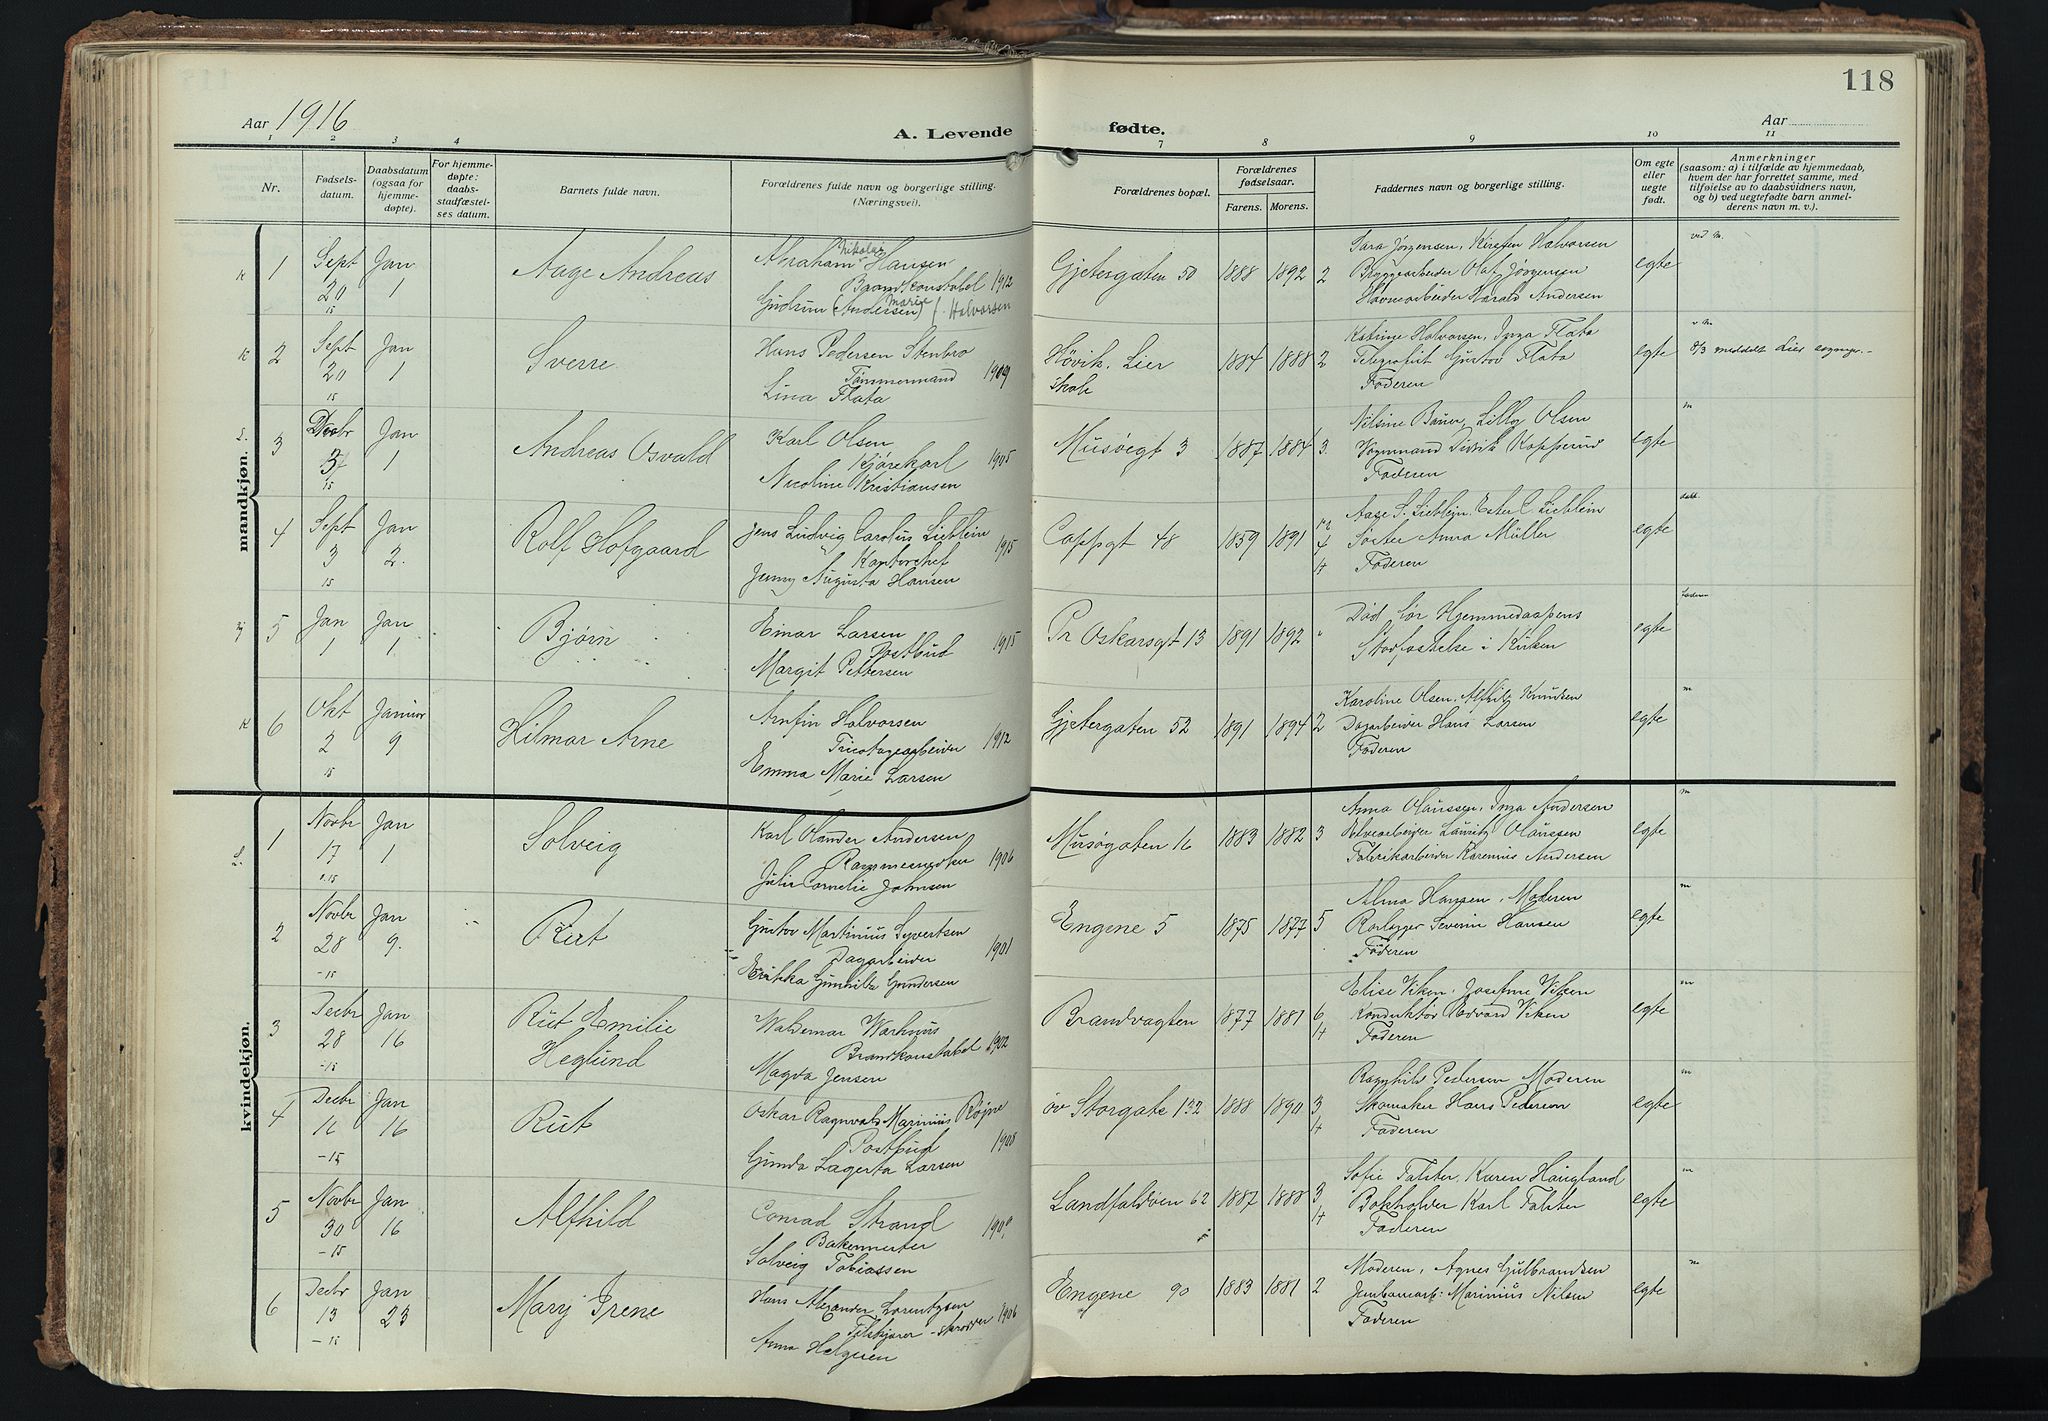 118
Aar 1916
A. Levende fødte.
Aar
1 2 3 4 7 8 9 10 11
Nr.
Fødsels-
datum.
Daabsdatum
(ogsaa for
hjemme-
døpte).
For hjemme-
døpte:
daabs-
stadfæstel-
ses datum.
Barnets fulde navn.
Forældrenes fulde navn og borgerlige stilling.
(Næringsvei).
Forældrenes bopæl.
Forældrenes
fødselsaar.
Farens. Morens.
Faddernes navn og borgerlige stilling.
Om egte
eller
uegte
født.
Anmerkninger
(saasom: a) i tilfælde av hjemmedaab,
hvem der har forrettet samme, med
tilføielse av to daabsvidners navn,
og b) ved uegtefødte barn anmel-
derens navn m. v.).
mandkjøn.
K 1 Sept 20 15 Jan 1 Aage Andreas
Abraham Nikolai Hansen
Brandkonstabel 1912
Gudrun Marie (Andersen) f. Halvorsen
Gjetergaten 50 1888 1892 2
Sara Jørgensen, Kirsten Halvorsen
Byggearbeider Olaf Jørgensen
Havnearbeider Harald Andersen
egte ved M.
K 2 Sept 20 15 Jan 1 Sverre
Hans Pedersen Stenbro
Tømmermand 1909
Lina Flata
Høvik, Lier
skole
1884 1888 2
Katrine Halvorsen, Inga Flata
Telegrafist Gustav Flata
Faderen
egte v M
8/3 meddelt Lier sogнepr.
L. 3 3 15 Jan 1 Andreas Osvald
Karl Olsen
Kjørekarl 1905
Nicoline Kristiansen
Musøegt 3 1887 1884 3.
Nilsine Bauer, Lilly Olsen
Vognmand Didrik Kopperud
Faderen
egte m
4 Sept 3 15 Jan 2. Rolf Hofgaard
Jens Ludvig Carolus Lieblein
Kontorchef 1915
Jenny Augusta Hansen
Cappgt 48 1859 1891
Aage S. Lieblein, Ester C. Lieblein
Søster Anna Müller
Faderen
egte
5 Jan 1 Jan 1. Bjørn
Einar Larsen
Postbud 1915
Margit Pettersen
Pr Oskarsgt 13 1891 1892 "
Død før Hjemmedaapens
Stadfæstelse i Kirken
egte Faderen
K 6 Okt 2 15 Januar 9 Hilmar Arne
Arnfin Halvorsen
Tricotagearbeider 1912
Emma Marie Larsen
Gjetergaten 52 1891 1894 2
Karoline Olsen, Alfhild Knudsen
Dagarbeider Hans Larsen
Faderen
egte m
kvindekjøn.
L. 1 Novbr 17 15 Jan 1 Solveig
Karl Olander Andersen
1906
Julie Cornelie Johnsen
Musøgaten 16 1883 1882 3
Anna Olaussen, Inga Andersen
Elvearbeider Lauritz Olaussen
Fabrikarbeider Karenius Andersen
egte m
2 Novbr 28 -15 Jan 9. Rut
Gustav Martinius Syvertsen
Dagarbeider 1901
Erikka Gunhild Gundersen
Engene 5 1875 1877 5
Alma Hansen, Moderen
Rørlegger Severin Hansen
Faderen
egte m
3 Decbr 28 -15 Jan 16 Rut Emilie
Heglund
Waldemar Warhuus
Brandkonstabel 1902
Magda Jensen
Brandvagten 1877 1881 6/4
Elise Viken, Josefine Viken
Konduktør Edvard Viken
Faderen
egte m
4 Decbr 16 -15 Jan 16 Rut
Oskar Ragnvald Marinius Røine
Postbud 1908
Gunda Lagerta Larsen
øv Storgate 132 1888 1890 3/4
Ragnhild Pedersen Moderen
Skomaker Hans Pedersen
Faderen
egte m
5 Novbr 30 -15 Jan 16 Alfhild
Conrad Strand
Bakermester
Solveig Tobiassen
Landfaldøen 62 1887 1888 3/4
Sofie Falster, Karen Haugland
Bokholder Karl Falster
Faderen
egte m
6 Decbr 13 -15 Jan 23 Mary Irene
Hans Alexander Lorentzen
1906
Anna Helgesen
Engene 90 1883 1881 2
Moderen, Agnes Gulbrandsen
Jernbanearb: Marinius Nilsen
Faderen
egte m